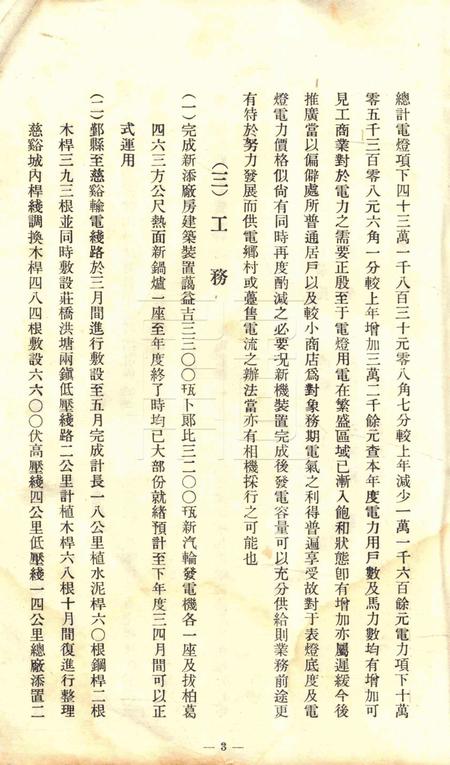 總計電燈項下四十三萬一千八百三十元零八角七分較上年減少一萬一千六百餘元電力項下十萬
零五千三百零八元六角一分較上年增加三萬二千餘元查本年度電力用戶數及馬力數均有增加可
見工商業對於電力之需要正殷至于電燈用電在繁盛區域已漸入飽和狀態卽有增加亦屬遲緩今後
推廣當以偏僻處所普通居戶以及較小商店爲對象務期電氣之利得普遍享受故對于表燈底度及電
燈電力價格似尙有同時再度酌減之必要況新機裝置完成後發電容量可以充分供給則業務前途更
有待於努力發展而供電鄕村或躉售電流之辦法當亦有相機採行之可能也
(三) 工務
(一) 完成新添廠房建築裝置藹益吉三三〇〇瓩卜郞比三二〇〇瓩新汽輪發電機各一座及拔柏葛
四六三方公尺熱面新鍋爐一座至年度終了時均已大部份就緒預計至下年度三四月間可以正
式運用
(二) 鄞縣至慈谿輸電綫路於三月間進行敷設至五月完成計長一八公里植水泥桿六〇根鋼桿二根
木桿三九三根並同時敷設莊橋洪塘兩鎭低壓綫路二公里計植木桿六八根十月間復進行整理
慈谿城內桿綫調換木桿四八四根敷設六六〇〇伏高壓綫四公里低壓綫一四公里總廠添置二
— 3 —